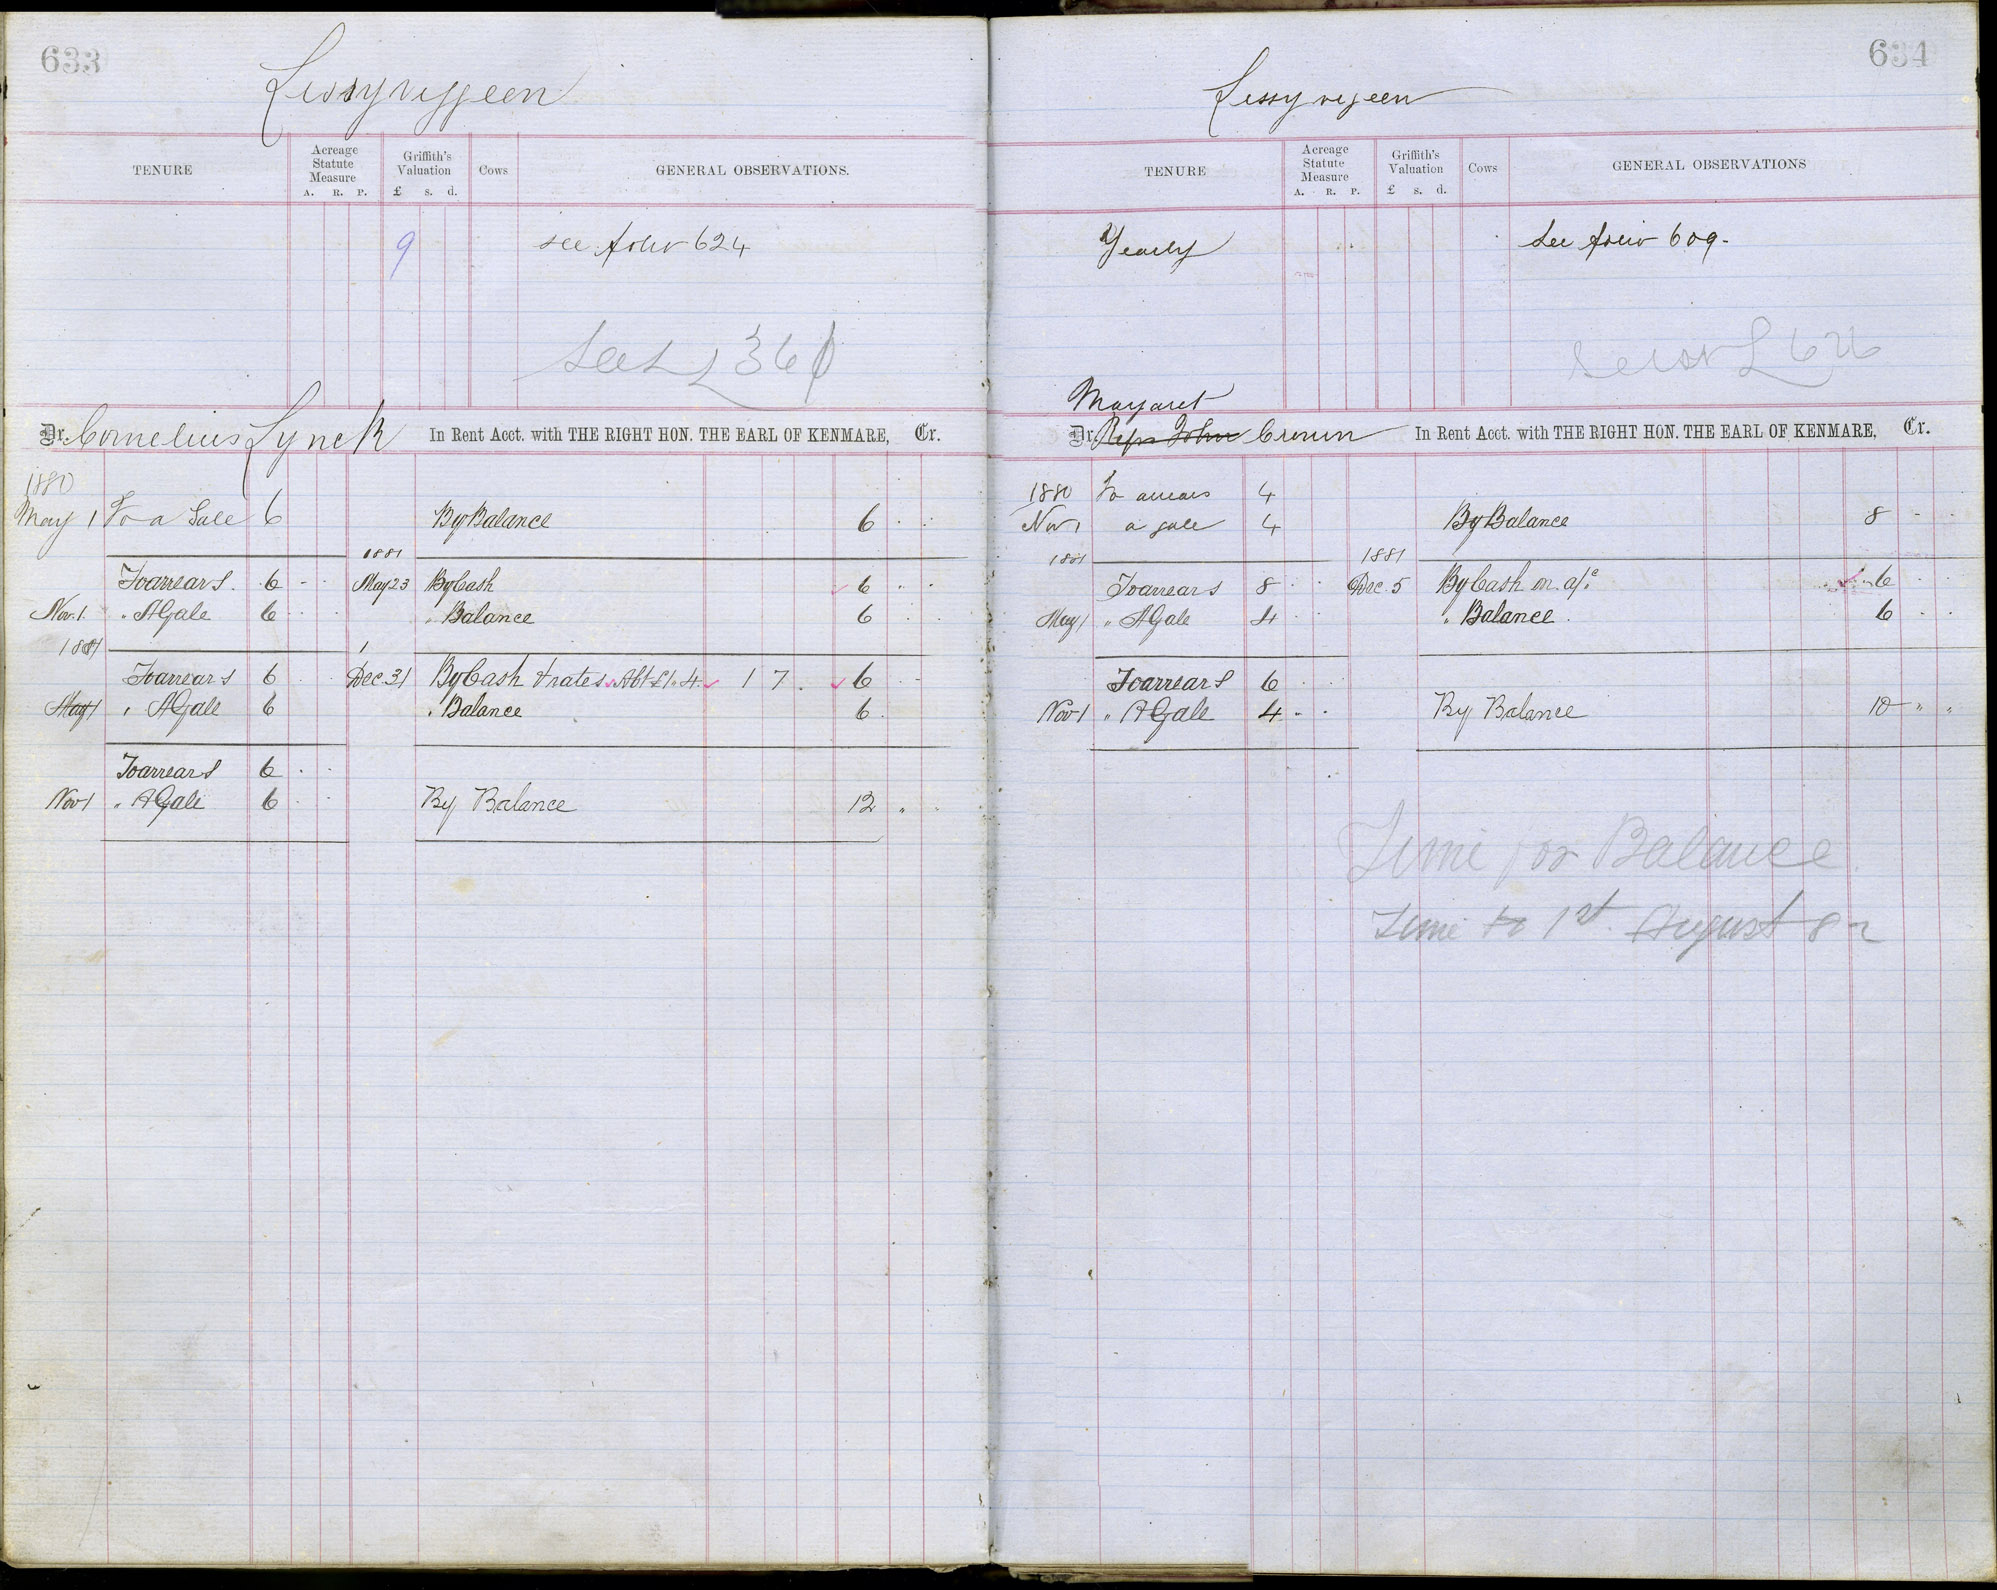 633
Lissyviggeen
TENURE
Acreage Statute Measure
A. R. P.
Griffith's Valuation
£ s. d.
Cows
GENERAL OBSERVATIONS.
9
see folio 624
360
Dr. Cornelius Lynch In Rent Acct. with THE RIGHT HON. THE EARL OF KENMARE, Cr.
1880
May 1 To a Gale 6 By Balance 6 . .
1881
To arrears . 6 . . May 23 By Cash 6 . .
Nov. 1. " A Gale 6 . . " Balance 6 . .
1881
To arrears 6 . . Dec. 31 By Cash & rates Abt £1. 4. 1 7 . 6 . .
May 1 " A Gale 6 " Balance 6 .
To arrears 6 . .
Nov 1 " A Gale 6 . . By Balance 12 " "
634
Lissyvigeen
TENURE
Acreage Statute Measure
A. R. P.
Griffith's Valuation
£ s. d.
Cows
GENERAL OBSERVATIONS
Yearly
See folio 609.
626
Margaret
Dr. Reps John Cronin In Rent Acct. with THE RIGHT HON. THE EARL OF KENMARE, Cr.
1880 To arrears 4
Nov 1 a gale 4 By Balance 8 . .
1881 1881
To arrears 8 . . Dec. 5 By Cash on a/c 6 . .
May 1 " A Gale 4 . " Balance . 6 . .
To arrears 6 .
Nov 1 " A Gale 4 . . By Balance 10 " "
Time for Balance.
Time to 1st August 82